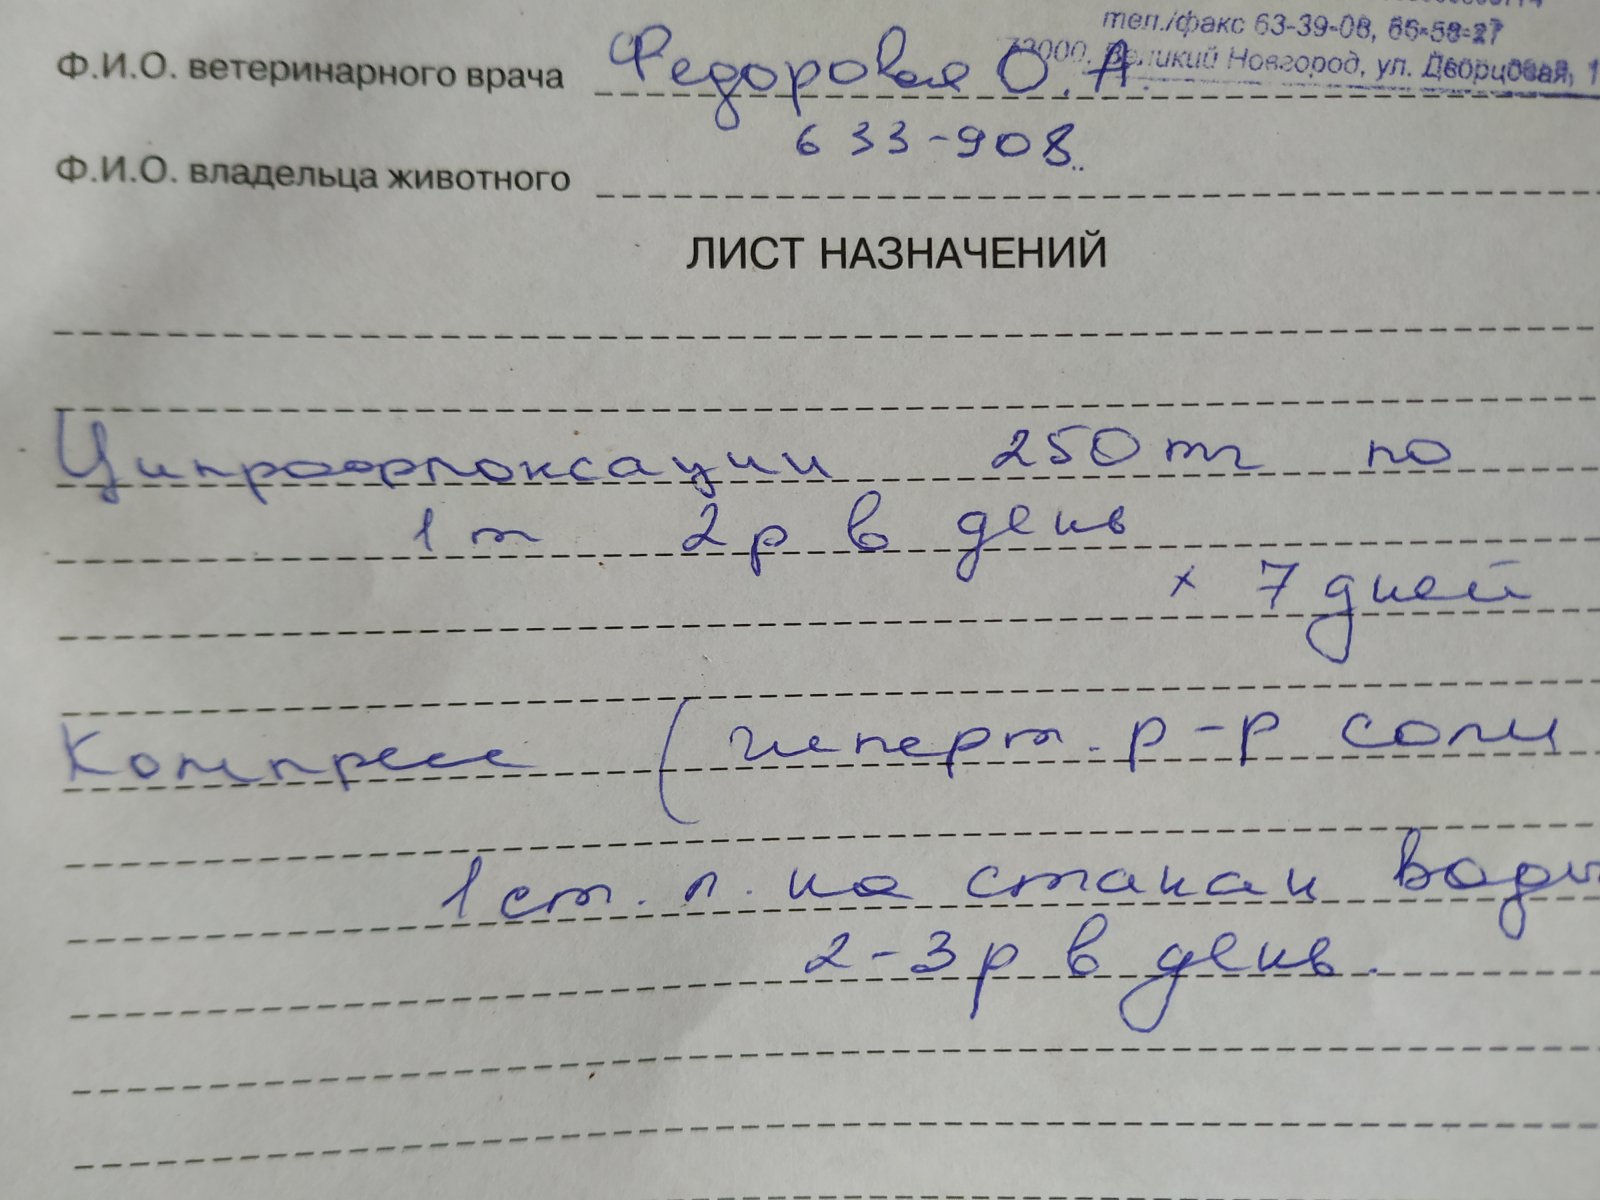 тел./факс 63-39-08, 65-58-27
Великий Новгород, ул. Дворцовая, 1
Ф.И.О. ветеринарного врача Федоровая О.А.
633-908
Ф.И.О. владельца животного
ЛИСТ НАЗНАЧЕНИЙ
Ципрофлоксацин 250 мг по
1 т 2 р в день
х 7 дней
Компресс (гиперт. р-р соли
1 ст. л. на стакан воды
2-3 р в день.